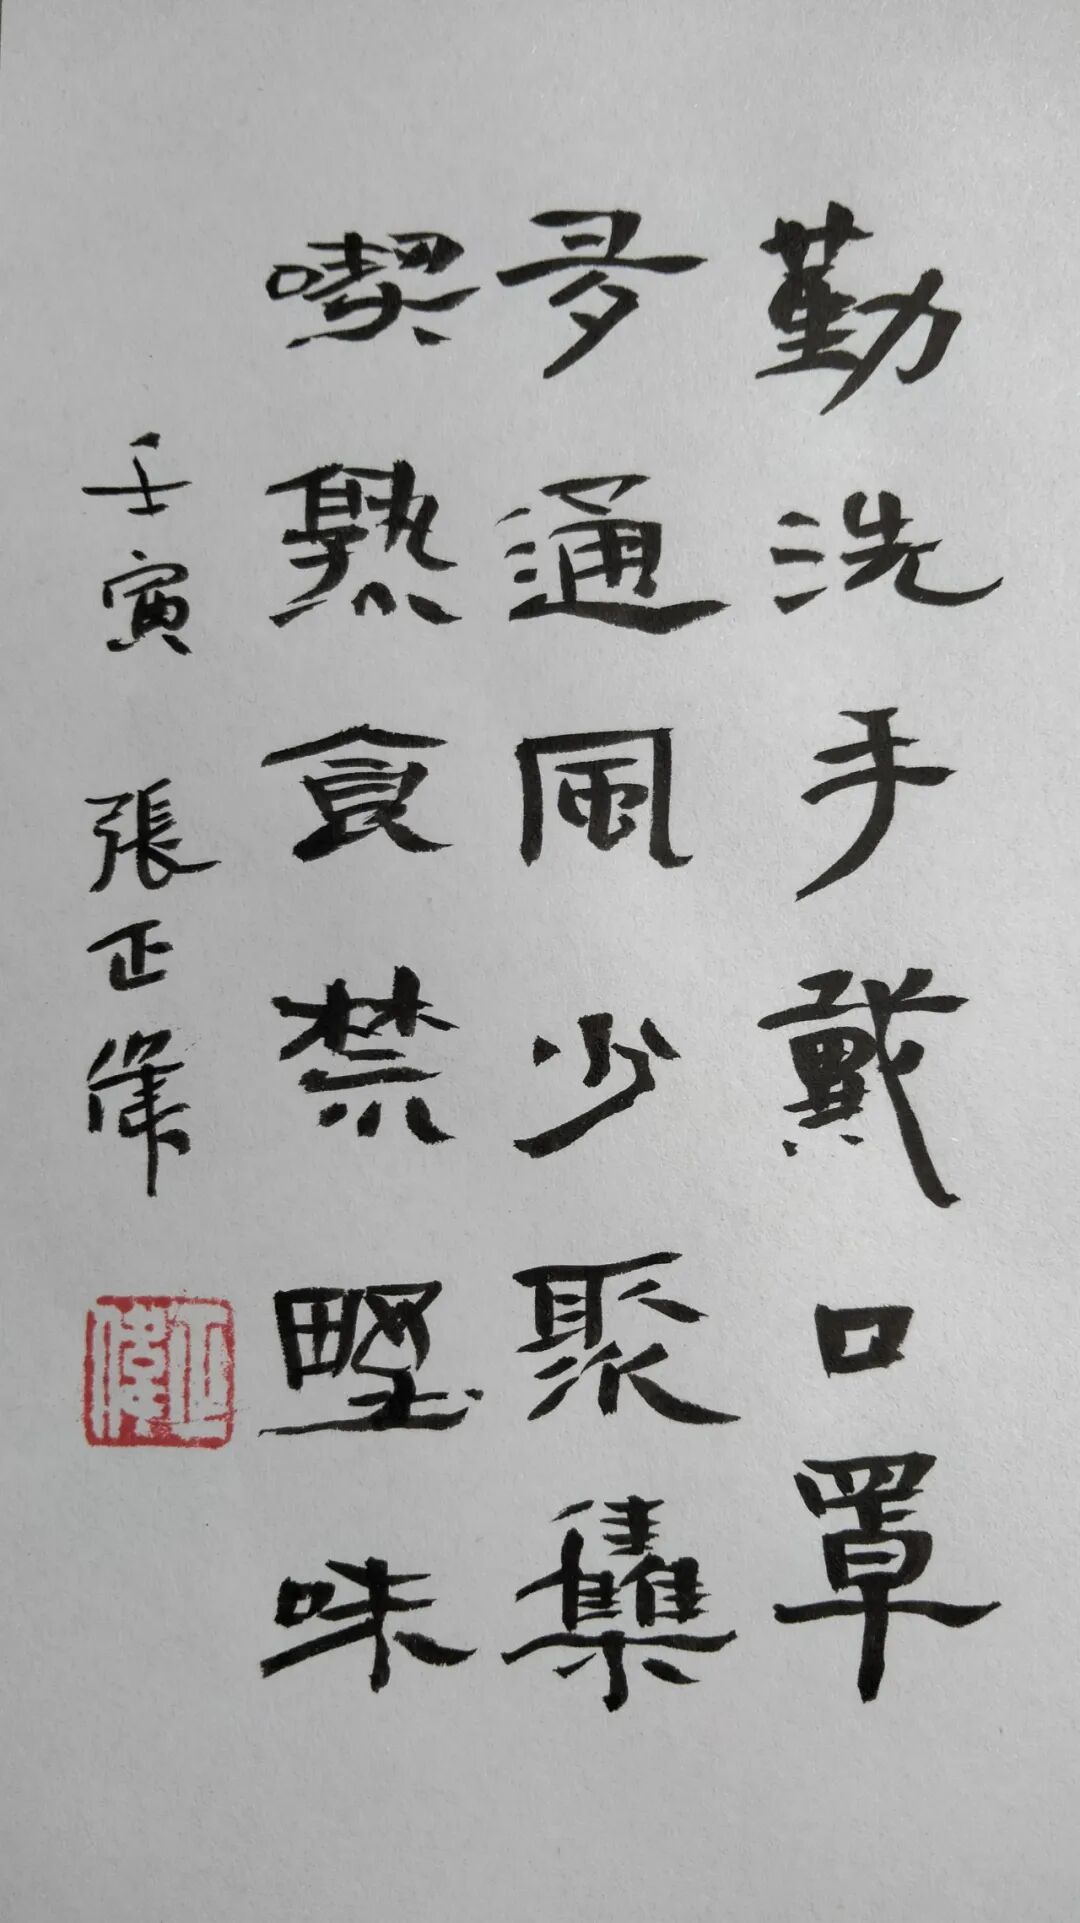 勤洗手戴口罩
多通風少聚集
喫熟食禁野味
壬寅 張正偉
正偉